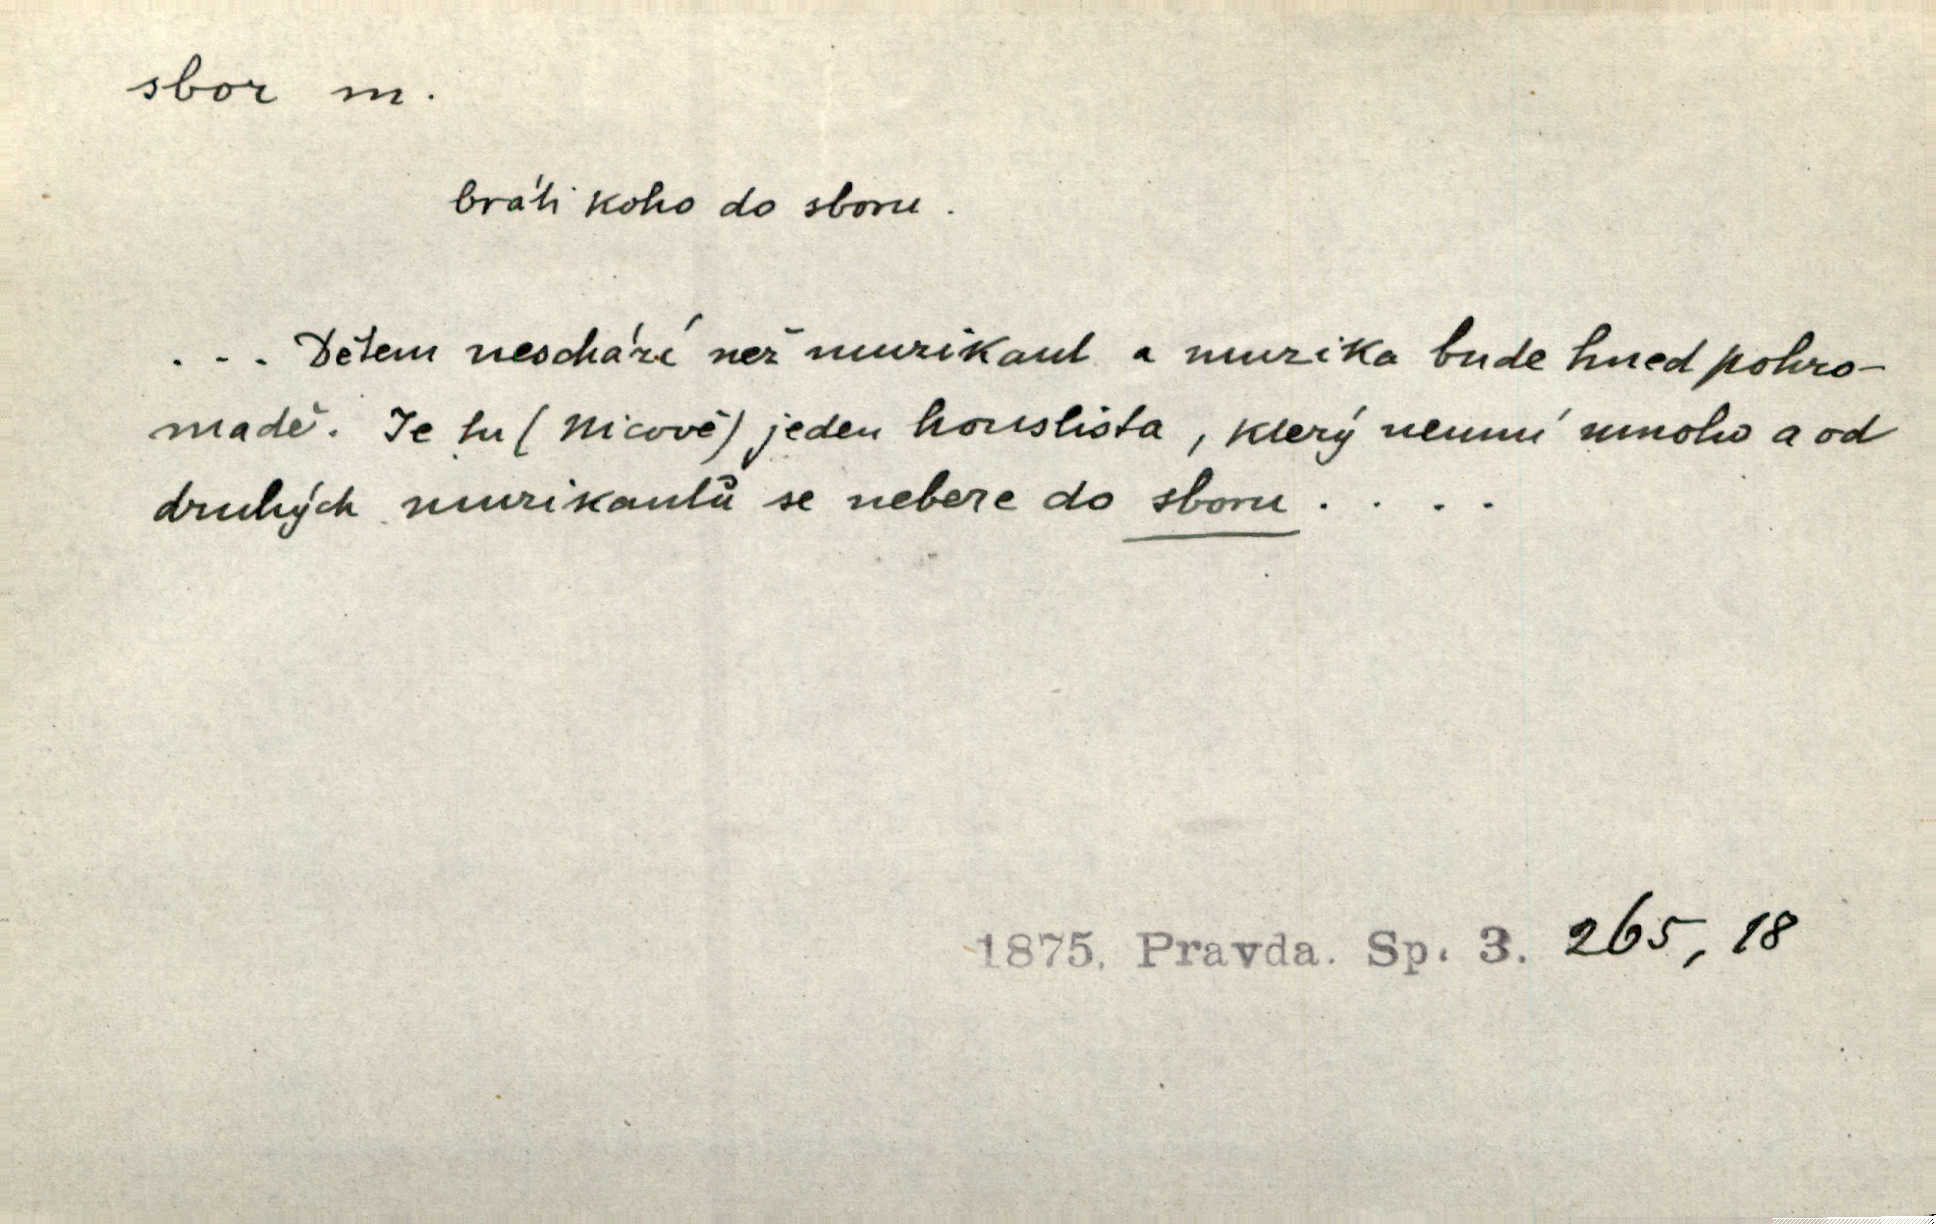 sbor m.
bráti koho do sboru.
... Dětem neschází než muzikant a muzika bude hned pohro-
madě. Je tu (Nicově) jeden houslista, který neumí mnoho a od
druhých muzikantů se nebere do sboru....
1875. Pravda. Sp. 3. 265, 18